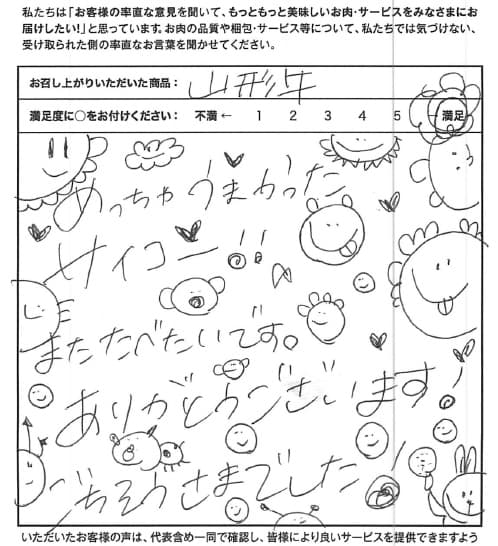 私たちは「お客様の率直な意見を聞いて、もっともっと美味しいお肉・サービスをみなさまにお
届けしたい!」と思っています。お肉の品質や梱包・サービス等について、私たちでは気づけない、
受け取られた側の率直なお言葉を聞かせてください。
お召し上がりいただいた商品： 山形牛
満足度に○をお付けください： 不満 ← 1 2 3 4 5 → 満足
めっちゃうまかった
サイコー!!
またたべたいです。
ありがとうございます!
ごちそうさまでした!
いただいたお客様の声は、代表含め一同で確認し、皆様により良いサービスを提供できますよう